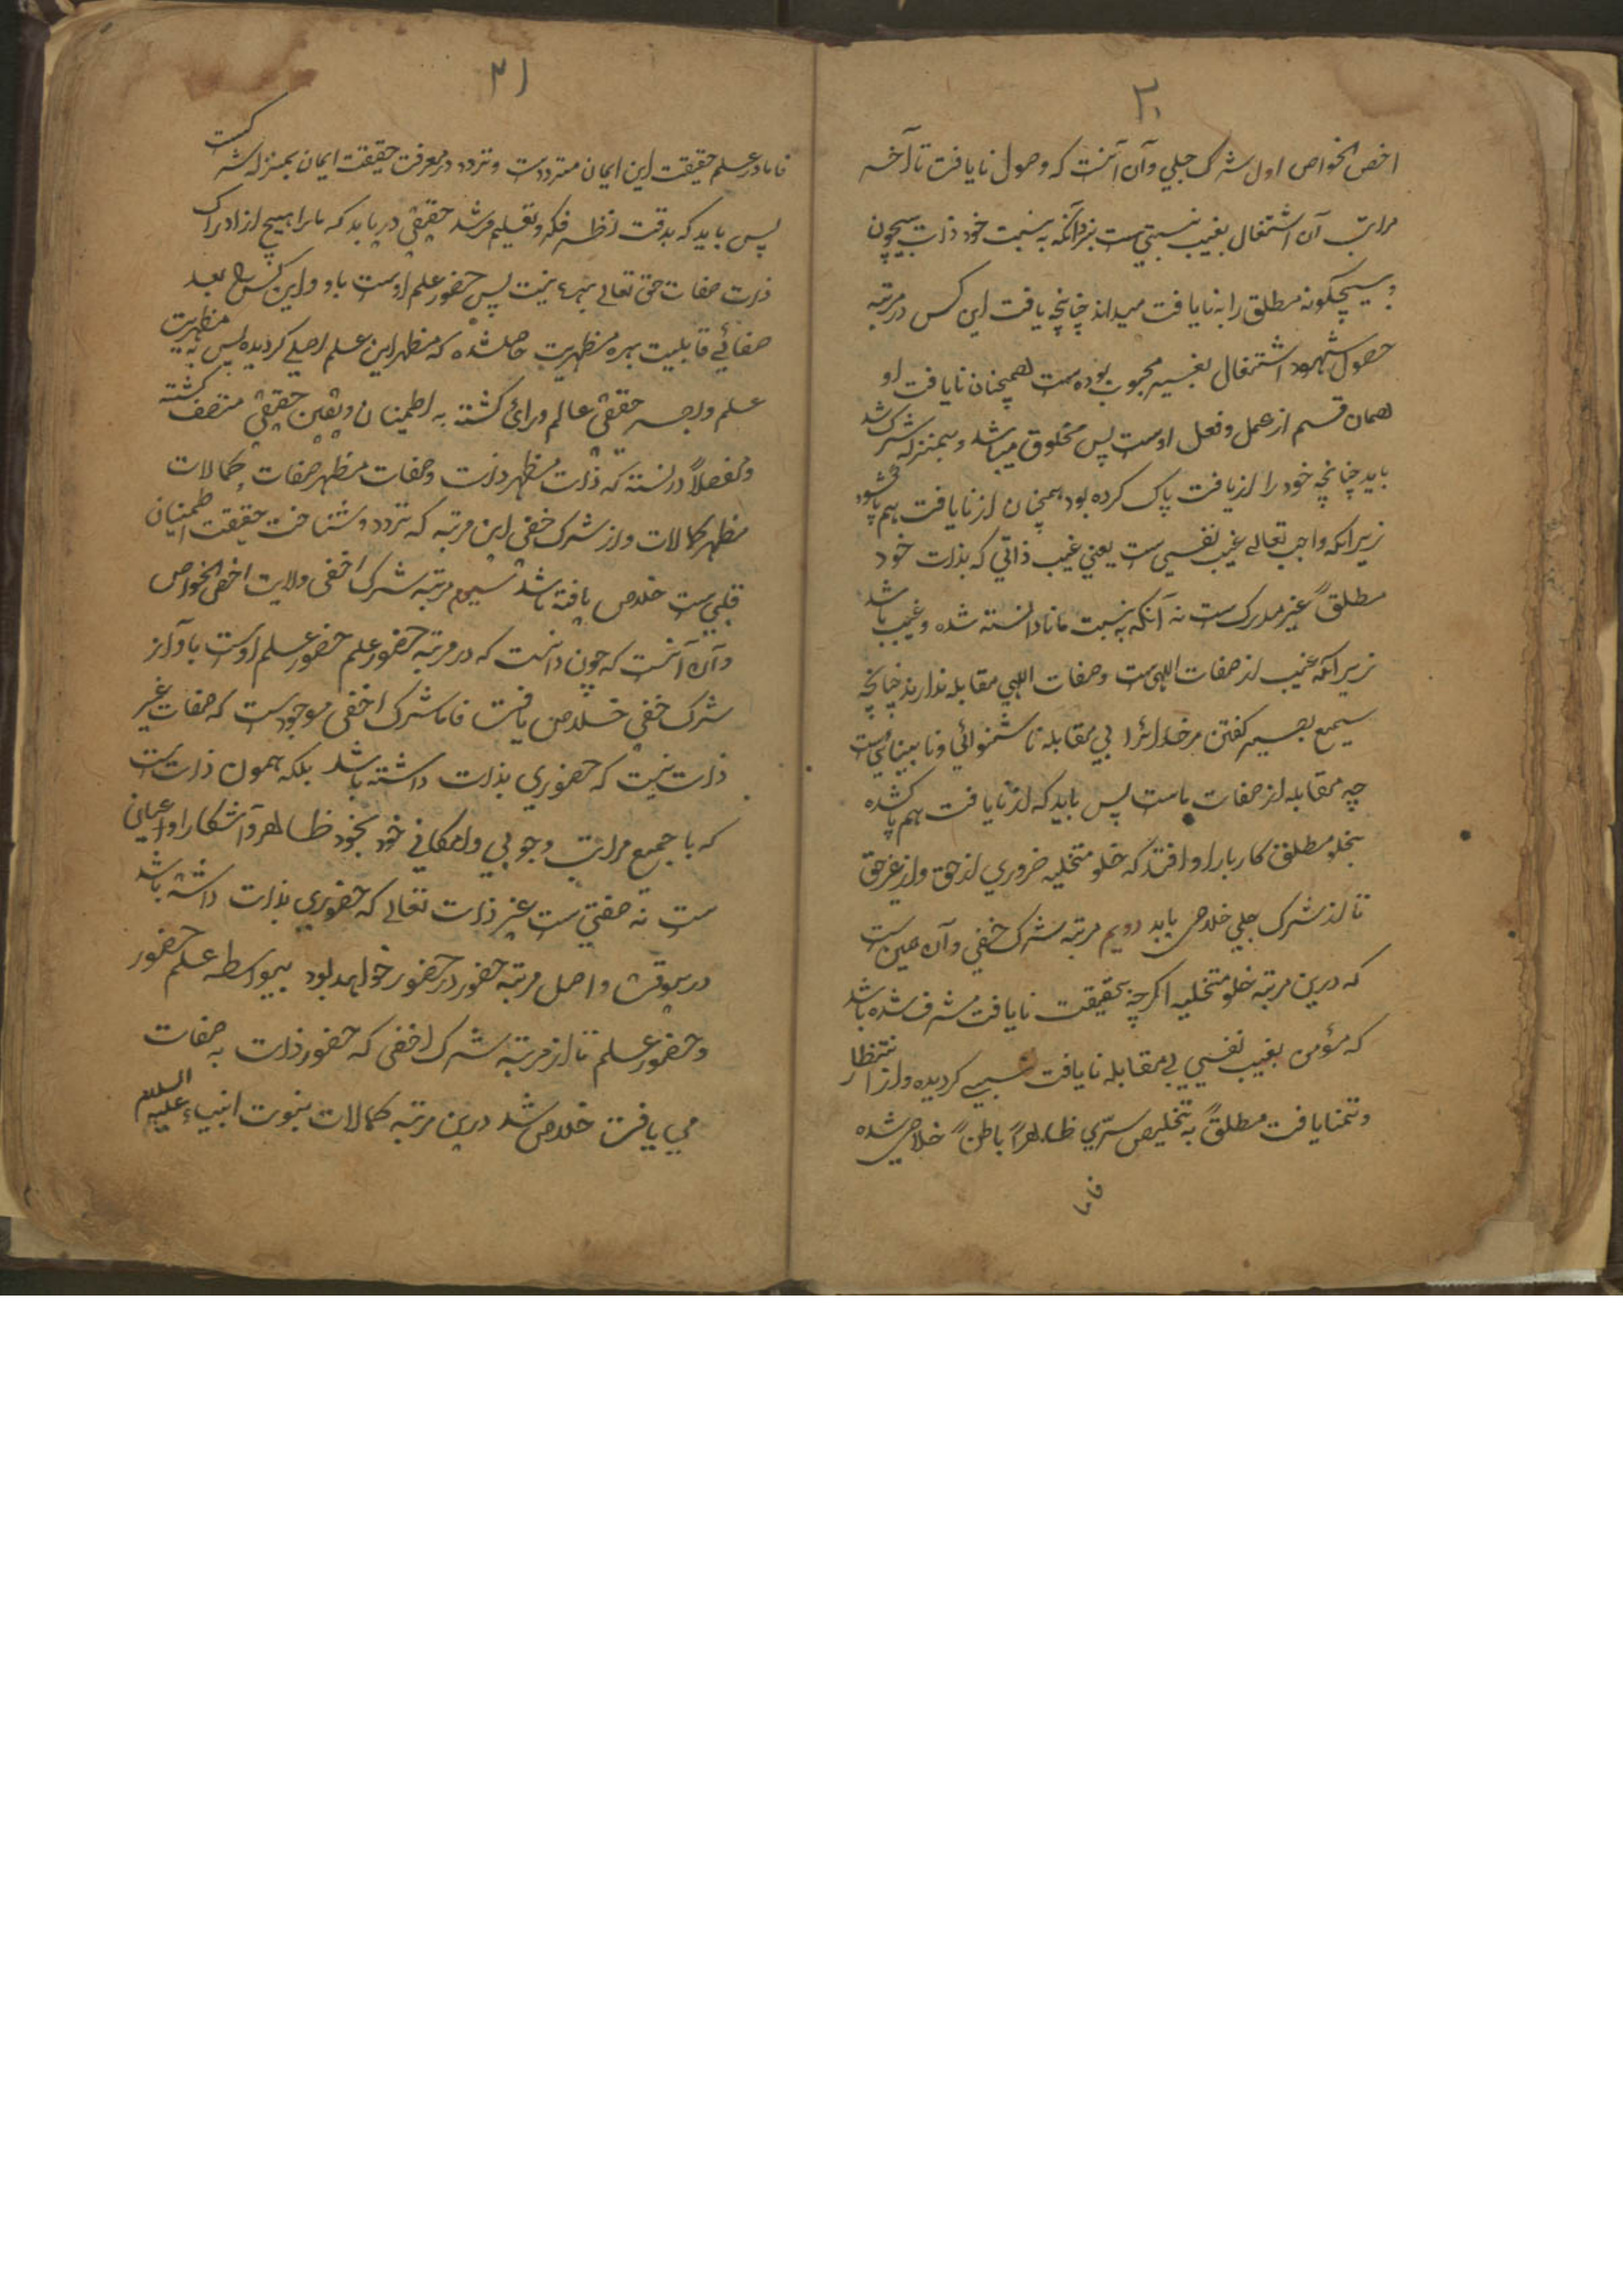 ۳۰
اخص الخواص اول شرک جلی و آن آنست که وصول نایافت تا آخر
مراتب آن اشتغال بغیب نسبتی ست بنزدآنکه به نسبت خود ذات بیچون
و بیچگونه مطلق را به نایافت میداند چنانچه یافت این کس در مرتبه
حصول شهود اشتغال بغیر محبوب بوده ست همچنان نایافت او
همان قسم از عمل و فعل اوست پس مخلوق میباشد و بمنزله شرک شد
باید چنانچه خود را از یافت پاک کرده بود همچنان از نایافت هم پاک شود
زیرانکه واجب تعالے غیب نفسی ست یعنی غیب ذاتی که بذات خود
مطلقاً غیر مدرک ست نه آنکه به نسبت ما نادانسته شده و غیب باشد
زیرانکه غیب از صفات الهی ست و صفات الهی مقابله ندارند چنانچه
سمیع بصیر گفتن مر خدائرا بی مقابله ناشنوائی و نابینائی ست
چه مقابله از صفات ماست پس باید که از نایافت هم پاک شده
بخلو مطلق کاربار او افتد که خلو متخلیه ضروری از حق و از غیر حق
تا از شرک جلی خلاص یابد دویم مرتبه شرک خفی و آن همین ست
که درین مرتبه خلو متخلیه اگرچه بحقیقت نایافت مشرف شده باشد
که مؤمن بغیب نفسی بے مقابله نایافت گردیده و از انتظار
و تمنا یافت مطلقاً به تخلیص سرّی ظاهراً باطناً خلاص شده
فاما
۳۱
فاما در علم حقیقت این ایمان متردد ست و تردد در معرفت حقیقت ایمان بمنزله شرک ست
پس باید که بدقت نظر فکر و تعلیم مرشد حقیقی دریابد که مارا هیچ از ادراک
ذات صفات حق تعالے بهره نیست پس حضور علم اوست باو و این کس را بعد
صفائے قابلیت بهره مظهریت حاصل شده که مظهر این علم اصلے گردیده پس به مظهریت
علم و بصر حقیقی عالم و رائی گشته به اطمینان و یقین حقیقی متصف گشته
و مفصلاً دانسته که ذات مظهر ذات و صفات مظهر صفات و کمالات
مظهر کمالات و از شرک خفی این مرتبه که تردد و شناخت حقیقت اطمینان
قلبی ست خلاص یافته باشد سیوم مرتبه شرک اخفی ولایت اخص الخواص
و آن آنست که چون دانست که در مرتبه حضور علم حضور علم اوست باو از
شرک خفی خلاص یافت فاما شرک اخفی موجود ست که صفات غیر
ذات نیست که حضوری بذات داشته باشد بلکه همون ذات ست
که با جمیع مراتب وجوبی و امکانی خود بخود ظاهر و آشکارا و عیانی
ست نه صفتی ست غیر ذات تعالے که حضوری بذات داشته باشد
درینوقت واصل مرتبه حضور در حضور خواهد بود بیواسطه علم حضور
و حضور علم تا از مرتبه شرک اخفی که حضور ذات به صفات
می یافت خلاص شد درین مرتبه کمالات نبوت انبیاء علیه السلام